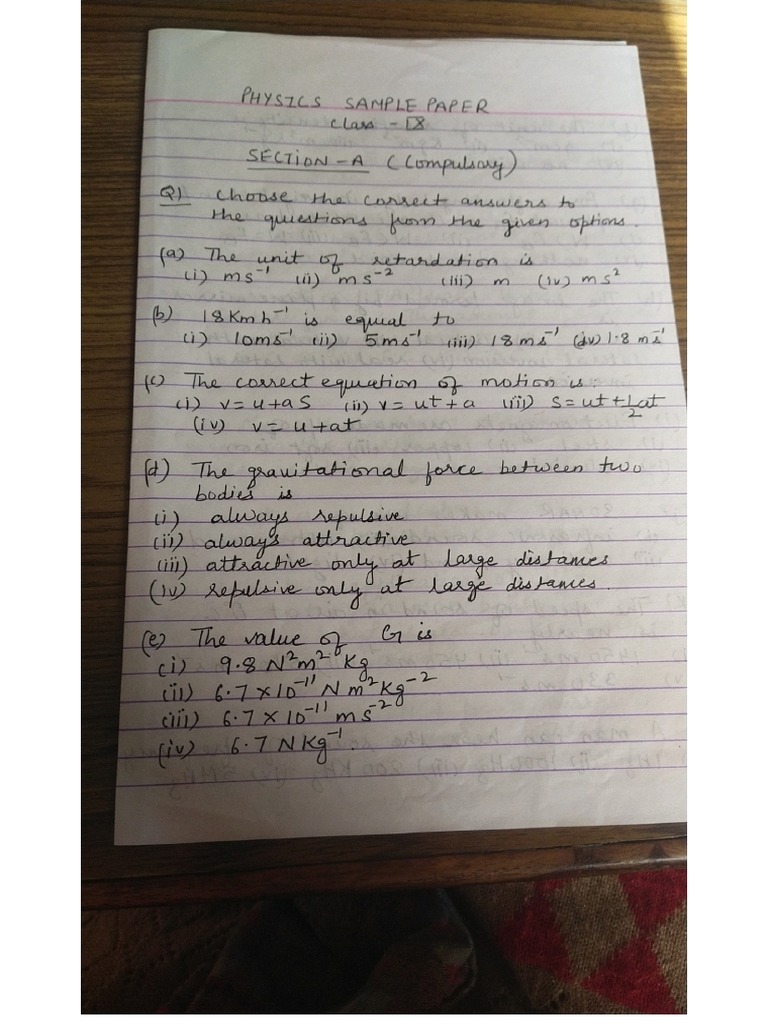 PHYSICS SAMPLE PAPER
Class - IX
SECTION-A (Compulsory)
Q1 Choose the correct answers to
the questions from the given options.
(a) The unit of retardation is
(i) ms⁻¹ (ii) ms⁻² (iii) m (iv) ms²
(b) 18 Km h⁻¹ is equal to
(i) 10ms⁻¹ (ii) 5ms⁻¹ (iii) 18 ms⁻¹ (iv) 1.8 ms⁻¹
(c) The correct equation of motion is:
(i) v = u+aS (ii) v = ut+a (iii) S = ut+½at
(iv) v = u+at
(d) The gravitational force between two
bodies is
(i) always repulsive
(ii) always attractive
(iii) attractive only at large distances
(iv) repulsive only at large distances.
(e) The value of G is
(i) 9.8 N²m² Kg
(ii) 6.7 x 10⁻¹¹ N m² Kg⁻²
(iii) 6.7 x 10⁻¹¹ m s⁻²
(iv) 6.7 N Kg⁻¹.